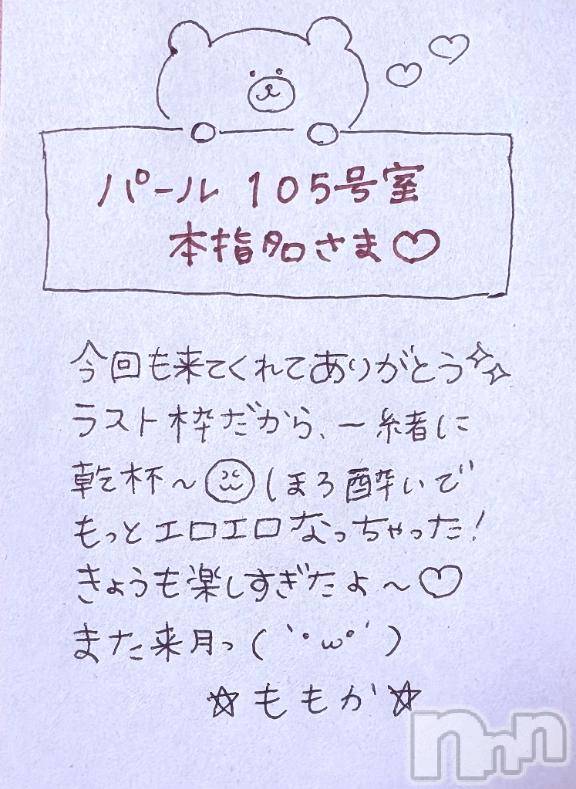 パール 105号室
本指名さま♡
今回も来てくれてありがとう
ラスト枠だから、一緒に
乾杯〜 ほろ酔いで
もっとエロエロなっちゃった！
きょうも楽しすぎたよ〜♡
また来月っ(｀･ω･´)
☆ももか☆
nnn